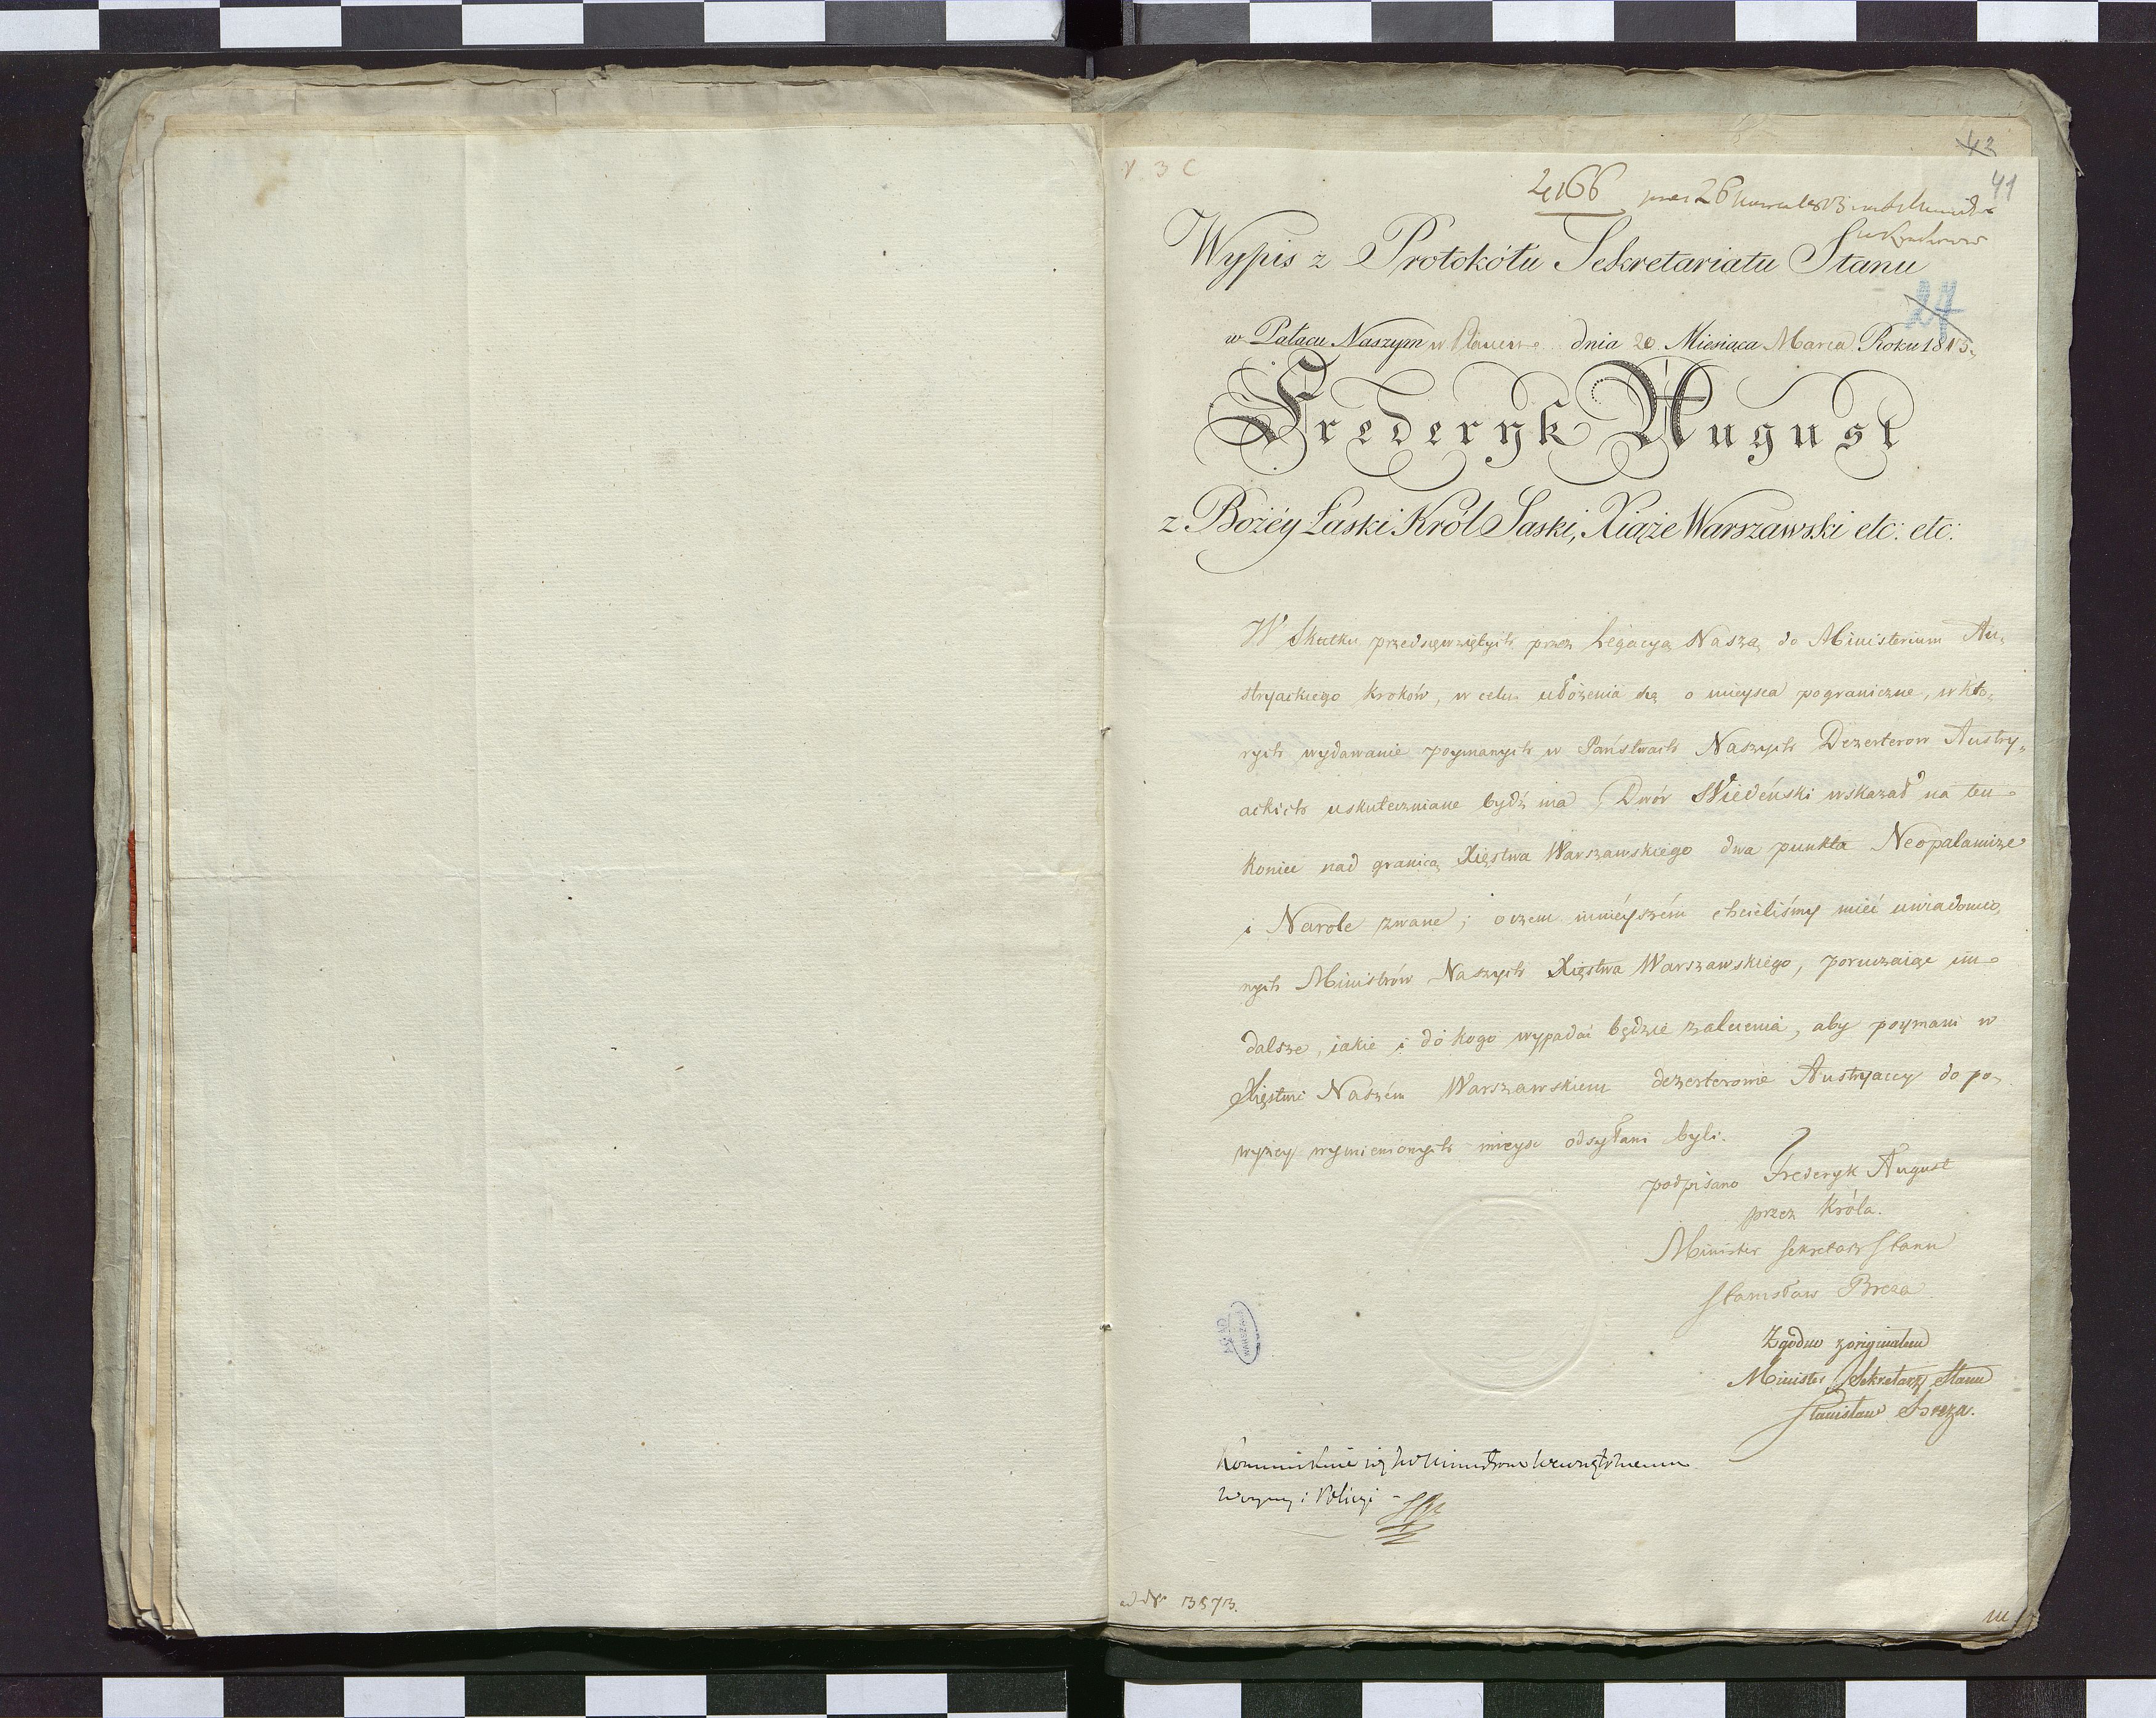 43
41
V 3 C
2166 26
Wypis z Protokółu Sekretariatu Stanu
24
w Pałacu Naszym w Plauen dnia 20. Miesiąca Marca Roku 1813.
Frederyk August
z Bożéy Łaski Król Saski, Xiąże Warszawski etc: etc:
W Skutku przedsięwziętych przez Legacyą Naszą do Ministerium Au-
stryackiego kroków, w celu ułożenia się o mieysca pograniczne, w któ-
rych wydawanie poymanych w Państwach Naszych Dezerterow Austry-
ackich uskuteczniane bydź ma, Dwór Wiedeński wskazał na ten
koniec nad granicą Xięstwa Warszawskiego dwa punkta Neopalamize
i Narole zwane; o czem ninieyszém chcieliśmy mieć uwiadomio-
nych Ministrów Naszych Xięstwa Warszawskiego, poruczaiąc im
dalsze, iakie i do kogo wypadać będzie zalecenia, aby poymani w
Xięstwie Naszém Warszawskiem dezerterowie Austryaccy do po-
wyżey wymienionych mieysc odsyłani byli.
podpisano Frederyk August
przez Króla.
Minister Sekretarz Stanu
Stanisław Breza
Zgodno z originałem
Minister Sekretarz Stanu
Stanisław Breza.
AGAD
WARSZAWA
Woyny i Policyi -
ad Nr 3573.